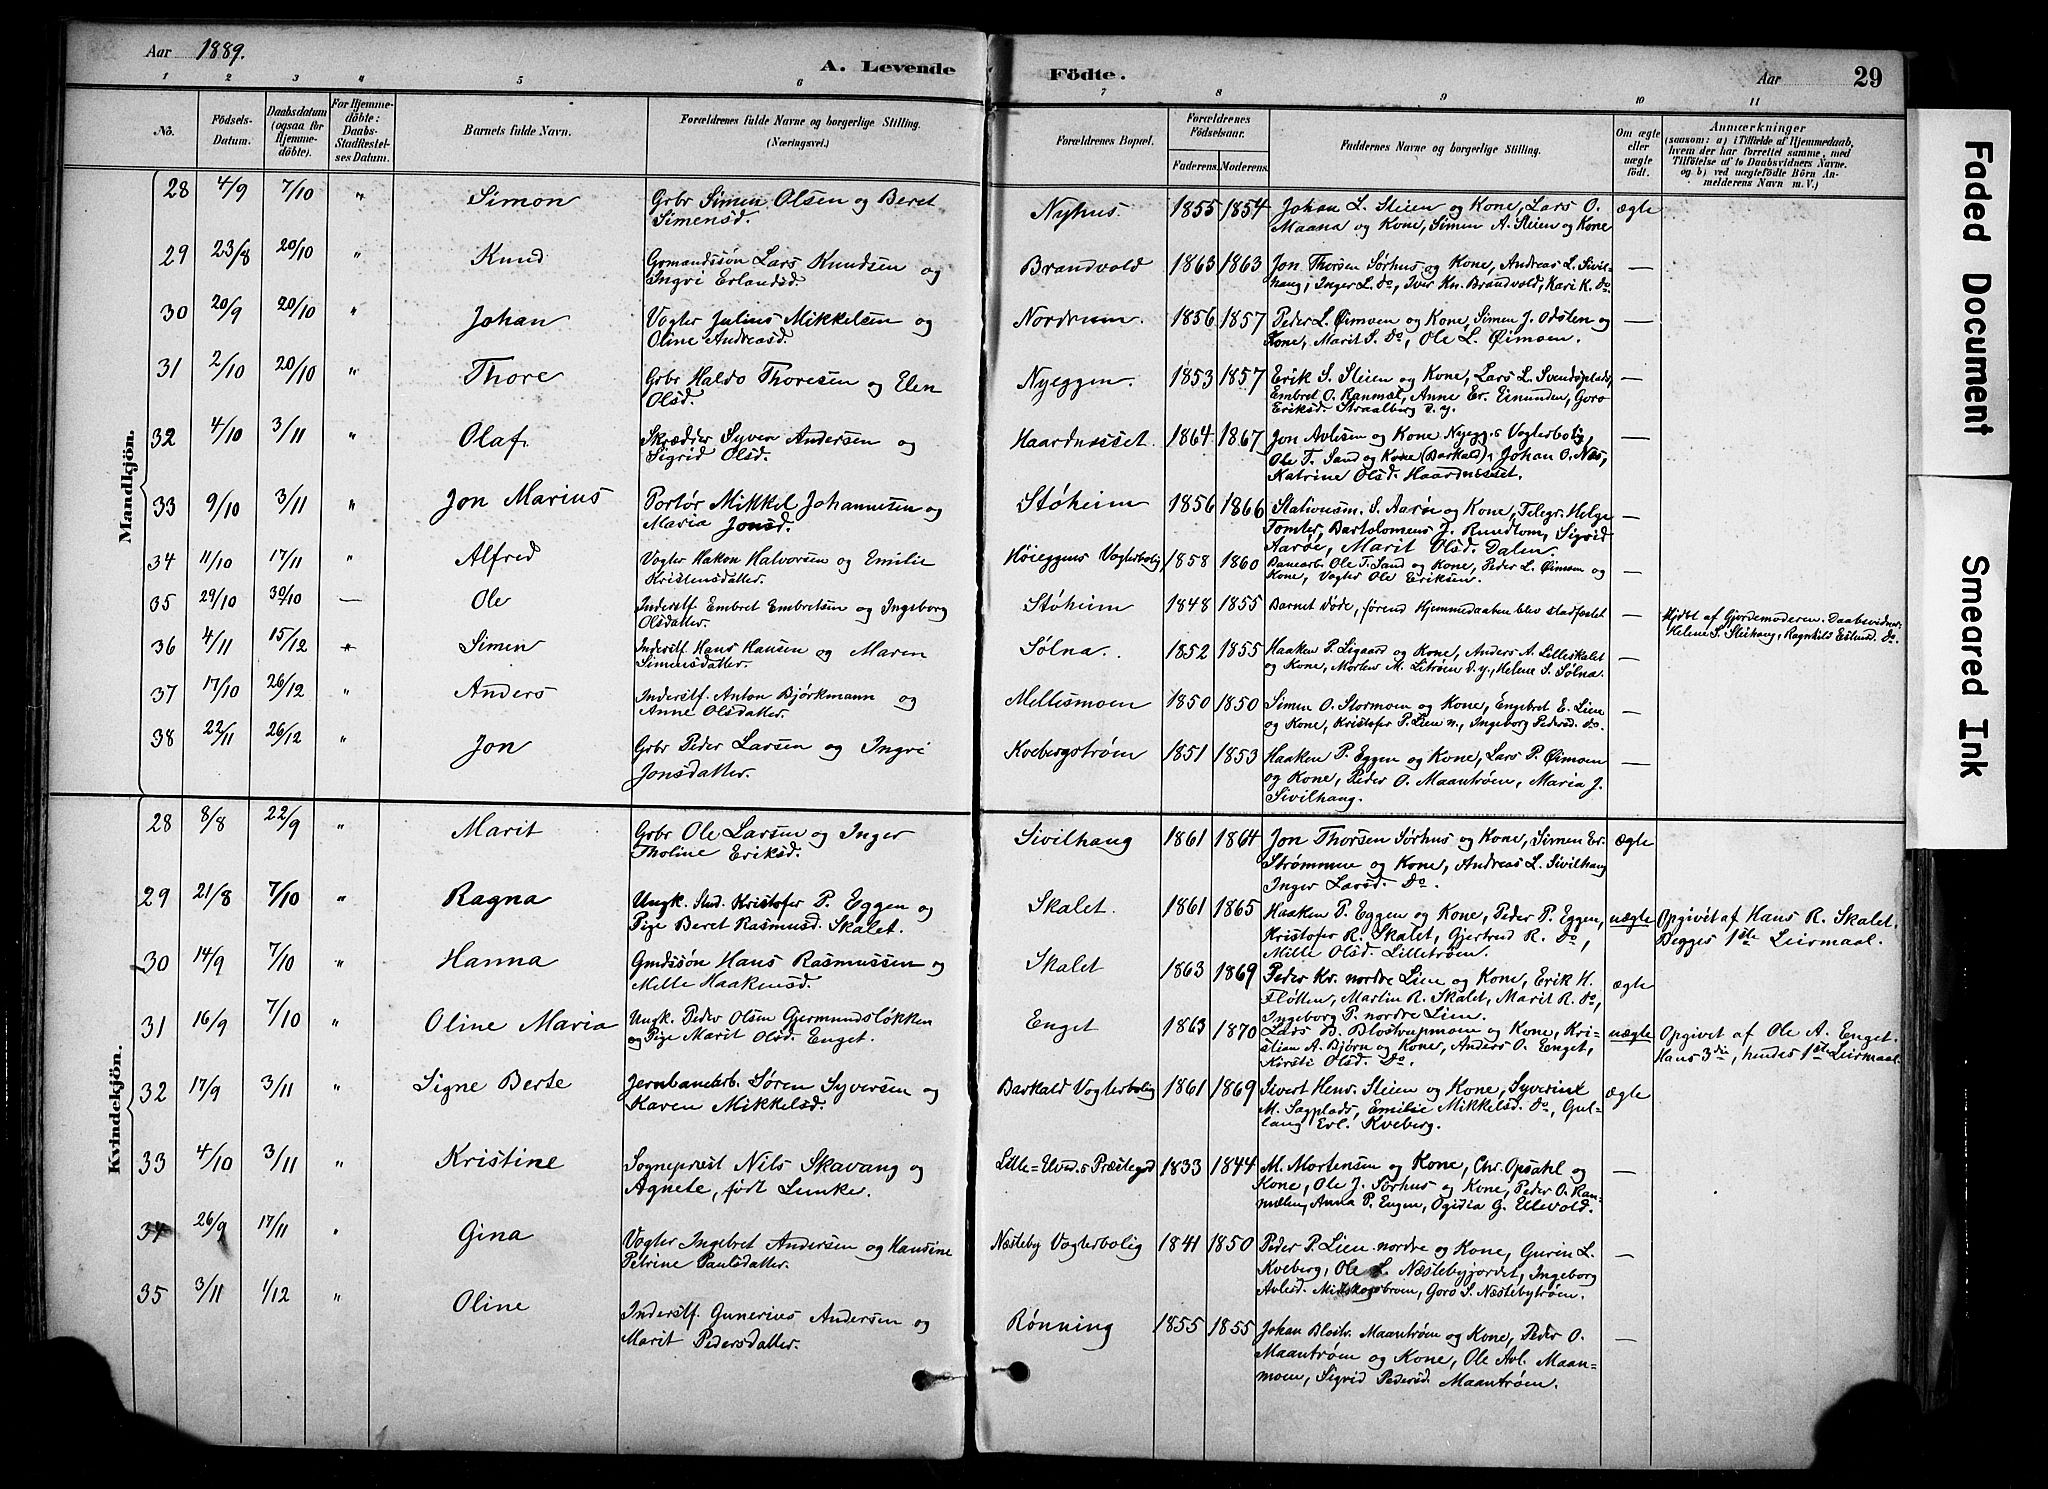 Aar 1889.
A. Levende
Födte.
Aar
29
1 2 3 4 5 6 7 8 9 10 11
No.
Födsels-Datum.
Daabsdatum (ogsaa for Hjemme-döbte).
For Hjemme-döbte: Daabs-Stadfæstel-ses Datum.
Barnets fulde Navn.
Forældrenes fulde Navne og borgerlige Stilling. (Næringsvei.)
Forældrenes Bopæl.
Forældrenes Födselsaar.
Faderens. Moderens.
Faddernes Navne og borgerlige Stilling.
Om ægte eller uægte födt.
Anmærkninger
(saasom: a) i Tilfælde af Hjemmedaab,
hvem der har forrettet samme, med
Tilföielse af to Daabsvidners Navne.
og b) ved uægtefödte Börn An-
melderens Navn m. V.)
Mandkjön.
28 4/9 7/10 " Simon Grbr Simen Olsen og Beret Simensd. Nyhus. 1855 1854 Johan L. Steien og Kone, Lars O. Maana og Kone, Simen A. Steien og Kone ægte
29 23/8 20/10 " Knud Grmandssøn Lars Knudsen og Ingri Erlandsd. Brandvold 1863 1863 Jon Thorsen Sørhus og Kone, Andreas L. Sivil-hang, Inger L. do, Iver Kn. Brandvold, Kari K. do. —
30 20/9 20/10 " Johan Vogter Julius Mikkelsen og Oline Andreasd. Nordrum. 1856 1857 Peder L. Øimoen og Kone, Simen J. Odsten og Kone, Marit S. do, Ole L. Øimoen. —
31 2/10 20/10 " Thore Grbr Haldo Thoresen og Elen Olsd. Nyeggen. 1853 1857 Erik S. Steien og Kone, Lars L. Svendsplads, Embret O. Ranmæl, Anne Er. Einunden, Goro Eriksd. Straalberg d. y. —
32 4/10 3/11 " Olaf. Skrædder Syver Andersen og Sigrid Olsd. Haardnæsset. 1864 1867 Jon Avlesen og Kone Nyegg.s Vogterbolig, Ole T. Sand og Kone (Barkald), Johan O. Næs, Katrine Olsd. Haardnæsset. —
33 9/10 3/11 " Jon Marius Portør Mikkel Johannesen og Maria Jonsd. Støheim 1856 1866 Stationsm. S. Aarøe og Kone, Telegr. Helge Tomter, Bartolomeus J. Rundtom, Sigrid Aarøe, Marit Olsd. Dalen. —
34 11/10 17/11 " Alfred Vogter Hakon Halvorsen og Emilie Kristensdatter. Høieggens Vogterbolig 1858 1860 Banearb. Ole T. Sand og Kone, Peder L. Øimoen og Kone, Vogter Ole Eriksen. —
35 29/10 30/10 — Ole Inderstf. Embret Embretsen og Ingeborg Olsdatter. Støheim 1848 1855 Barnet døde, førend Hjemmedaaben blev stadfæstet — Hjdbt af Gjordemoderen. Daabsvidner: Helene S. Steihang, Ragnhild Eslund. do.
36 4/11 15/12 " Simen Inderstf. Hans Hansen og Maren Simensdatter. Sølna. 1852 1855 Haaken P. Ligaard og Kone, Anders A. Lilleskalet og Kone, Morten M. Litrøen d. y., Helene S. Sølna. —
37 17/10 26/12 " Anders Inderstf. Anton Bjørkmann og Anne Olsdatter. Mellesmoen 1850 1850 Simen O. Stormoen og Kone, Engebret E. Lien og Kone, Kristofer P. Lien n., Ingeborg Pedersd. do. —
38 22/11 26/12 " Jon Grbr Peder Larsen og Ingri Jonsdatter. Kvebergstrøen 1851 1853 Haaken P. Eggen og Kone, Lars P. Øimoen og Kone, Peder O. Maantrøen, Maria J. Sivilhang. —
Kvindekjön.
28 8/8 22/9 " Marit Grbr Ole Larsen og Inger Tholine Eriksd. Sivilhang 1861 1864 Jon Thorsen Sørhus og Kone, Simen Er. Strømmen og Kone, Andreas L. Sivilhang Inger Larsd. do. ægte
29 21/8 7/10 " Ragna Ungk. Snd. Kristofer P. Eggen og Pige Beret Rasmusd. Skalet. Skalet. 1861 1865 Haaken P. Eggen og Kone, Peder P. Eggen, Kristofer R. Skalet, Gjertrud R. do, Mille Olsd. Lilletrøen. uægte Opgivet af Hans R. Skalet. Begges 1ste Leiermaal.
30 14/9 7/10 " Hanna Gmdssøn Hans Rasmussen og Mille Haakensd. Skalet 1863 1869 Peder Kr. nordre Lien og Kone, Erik H. Fløtten, Martin R. Skalet, Marit R. do, Ingeborg P. nordre Lien. ægte
31 16/9 7/10 " Oline Maria Ungk. Peder Olsen Gjermundsløkken og Pige Marit Olsd. Enget. Enget 1863 1870 Lars B. Blostrupmoen og Kone, Kri-stian A. Bjørn og Kone, Anders O. Enget, Kirsti Olsd. do. uægte Opgivet af Ole A. Enget. Hans 3die, hendes 1ste Leiermaal.
32 17/9 3/11 " Signe Berte Jernbanearb. Søren Syversen og Karen Mikkelsd. Barkald Vogterbolig 1861 1869 Sivert Henr. Steien og Kone, Syverine M. Sagplads, Emilie Mikkelsd. do, Gul-laug Erl. Kveberg. ægte
33 4/10 3/11 " Kristine Sognepræst Nils Skavang og Agnete, født Lunke. Lille=Elved.s Præstegrd 1833 1844 M. Mortensen og Kone, Chr. Opsahl og Kone, Ole J. Sørhus og Kone, Peder O. Ran-mælen, Anna P. Engen, Ogidia G. Ellevold. —
34 26/9 17/11 " Gina Vogter Ingebret Andersen og Handine Petrine Paulsdatter. Næsteby Vogterbolig 1841 1850 Peder P. Lien nordre og Kone, Gurin L. Kveberg, Ole L. Næstebyjordet, Ingeborg Avlesd. , Goro S. Næstebytrøen. —
35 3/11 1/12 " Oline Inderstf. Gunerius Andersen og Marit Pedersdatter. Rønning 1855 1855 Johan Blostr. Maantrøen og Kone, Peder O. Maantrøen og Kone, Ole Avl. Maan-moen, Sigrid Pedersd. Maantrøen. —
Faded Document
Smeared Ink